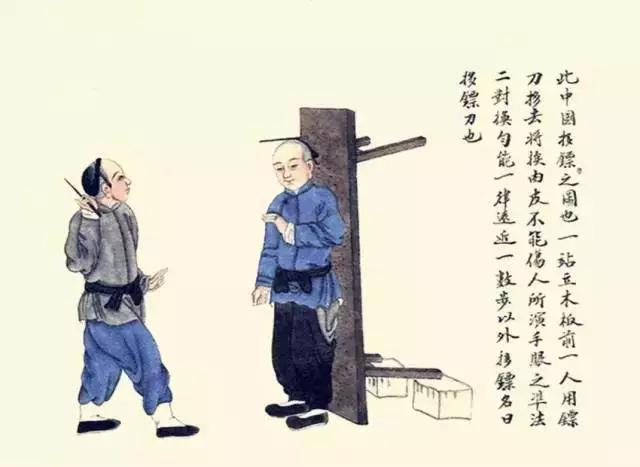 此中国扔鏢之圖也一站立木板前一人用鏢
刀扔去將挨由皮不能傷人所演手眼之準法
二對換勻能一律遠近一數步以外扔鏢名曰
扔鏢刀也